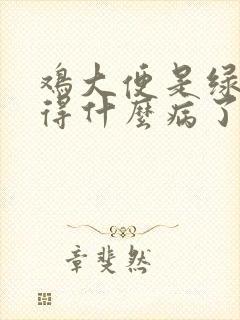 鸡大便是绿
得什麼病了
章斐然